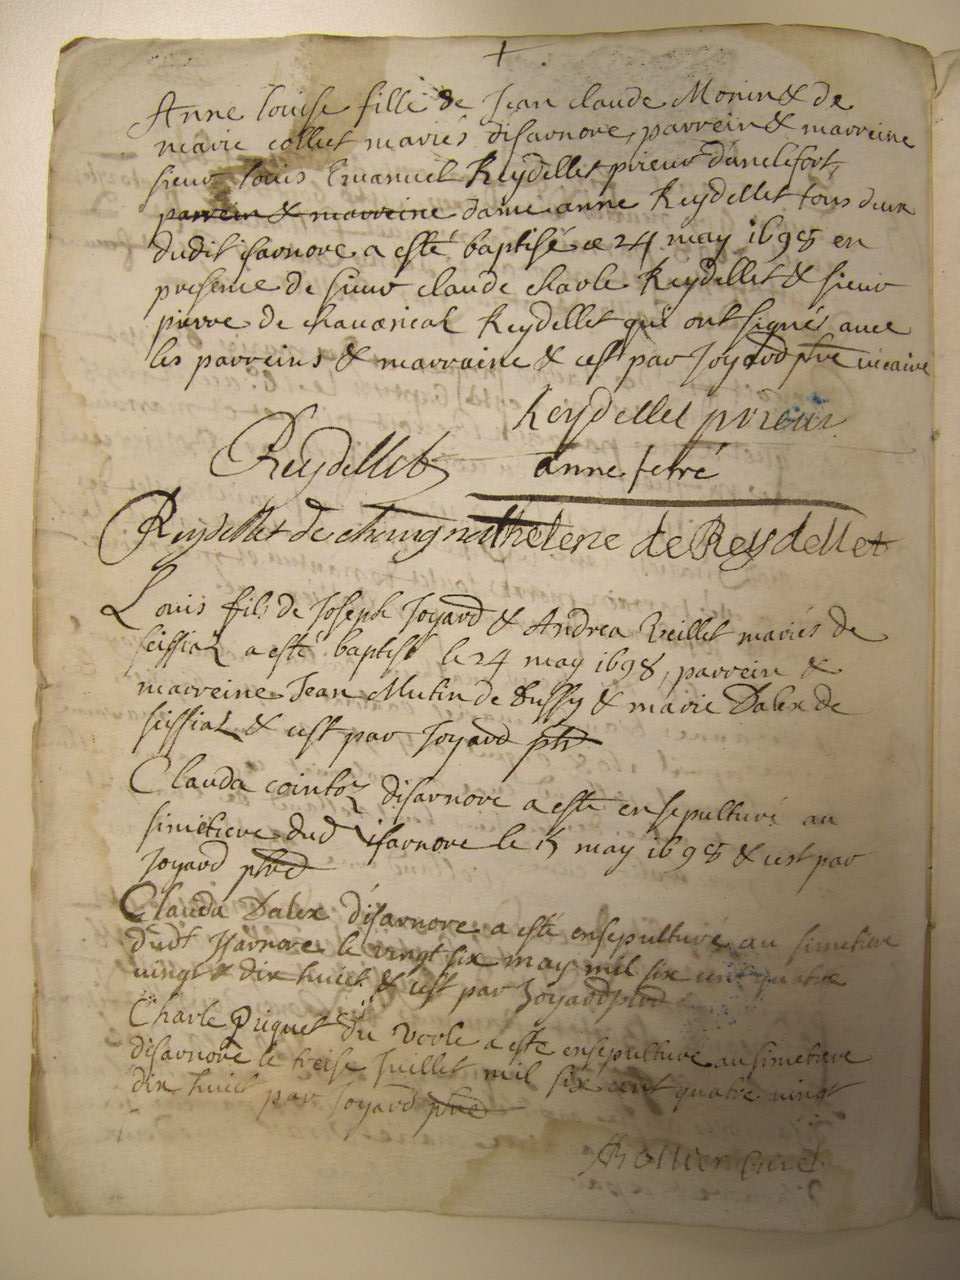 Anne Louise fille de Jean Claude Monin & de
marie collet mariés disarnore, parrein & marreine
sieur Louis Emanuel Reydellet prieur danclefort,
parrein & marreine dame anne Reydellet tous deux
dudit isarnore a esté baptisé ce 24 may 1698 en
presence de sieur claude charle Reydellet & sieur
pierre de chavarical Reydellet qui ont signés avec
les parreins & marraine & cest par Joyard ptre vicaire
Reydellet prieur
Reydellet anne ferré
Reydellet de helene de Reydellet
Louis fils de Joseph Joyard & Andrea Veillet mariés de
seissiat a esté baptisé le 24 may 1698, parrein &
marreine Jean Mutin de Bussy & marie Dalex de
seissiat & cest par Joyard ptre
Clauda cointoz disarnore a esté ensepulturé au
simetiere dud isarnore le 15 may 1698 & cest par
Joyard ptre
Clauda Dalex d'isarnore a esté ensepulturé au simetiere
dudt Isarnore le vingt six may mil six cent quatre
vingt & dix huict & cest par Joyard ptre
Charle Priquet du Verle a esté ensepulturé au simetiere
disarnore le treise Juillet mil six cent quatre vingt
dix huict par Joyard ptre
Bollier curé